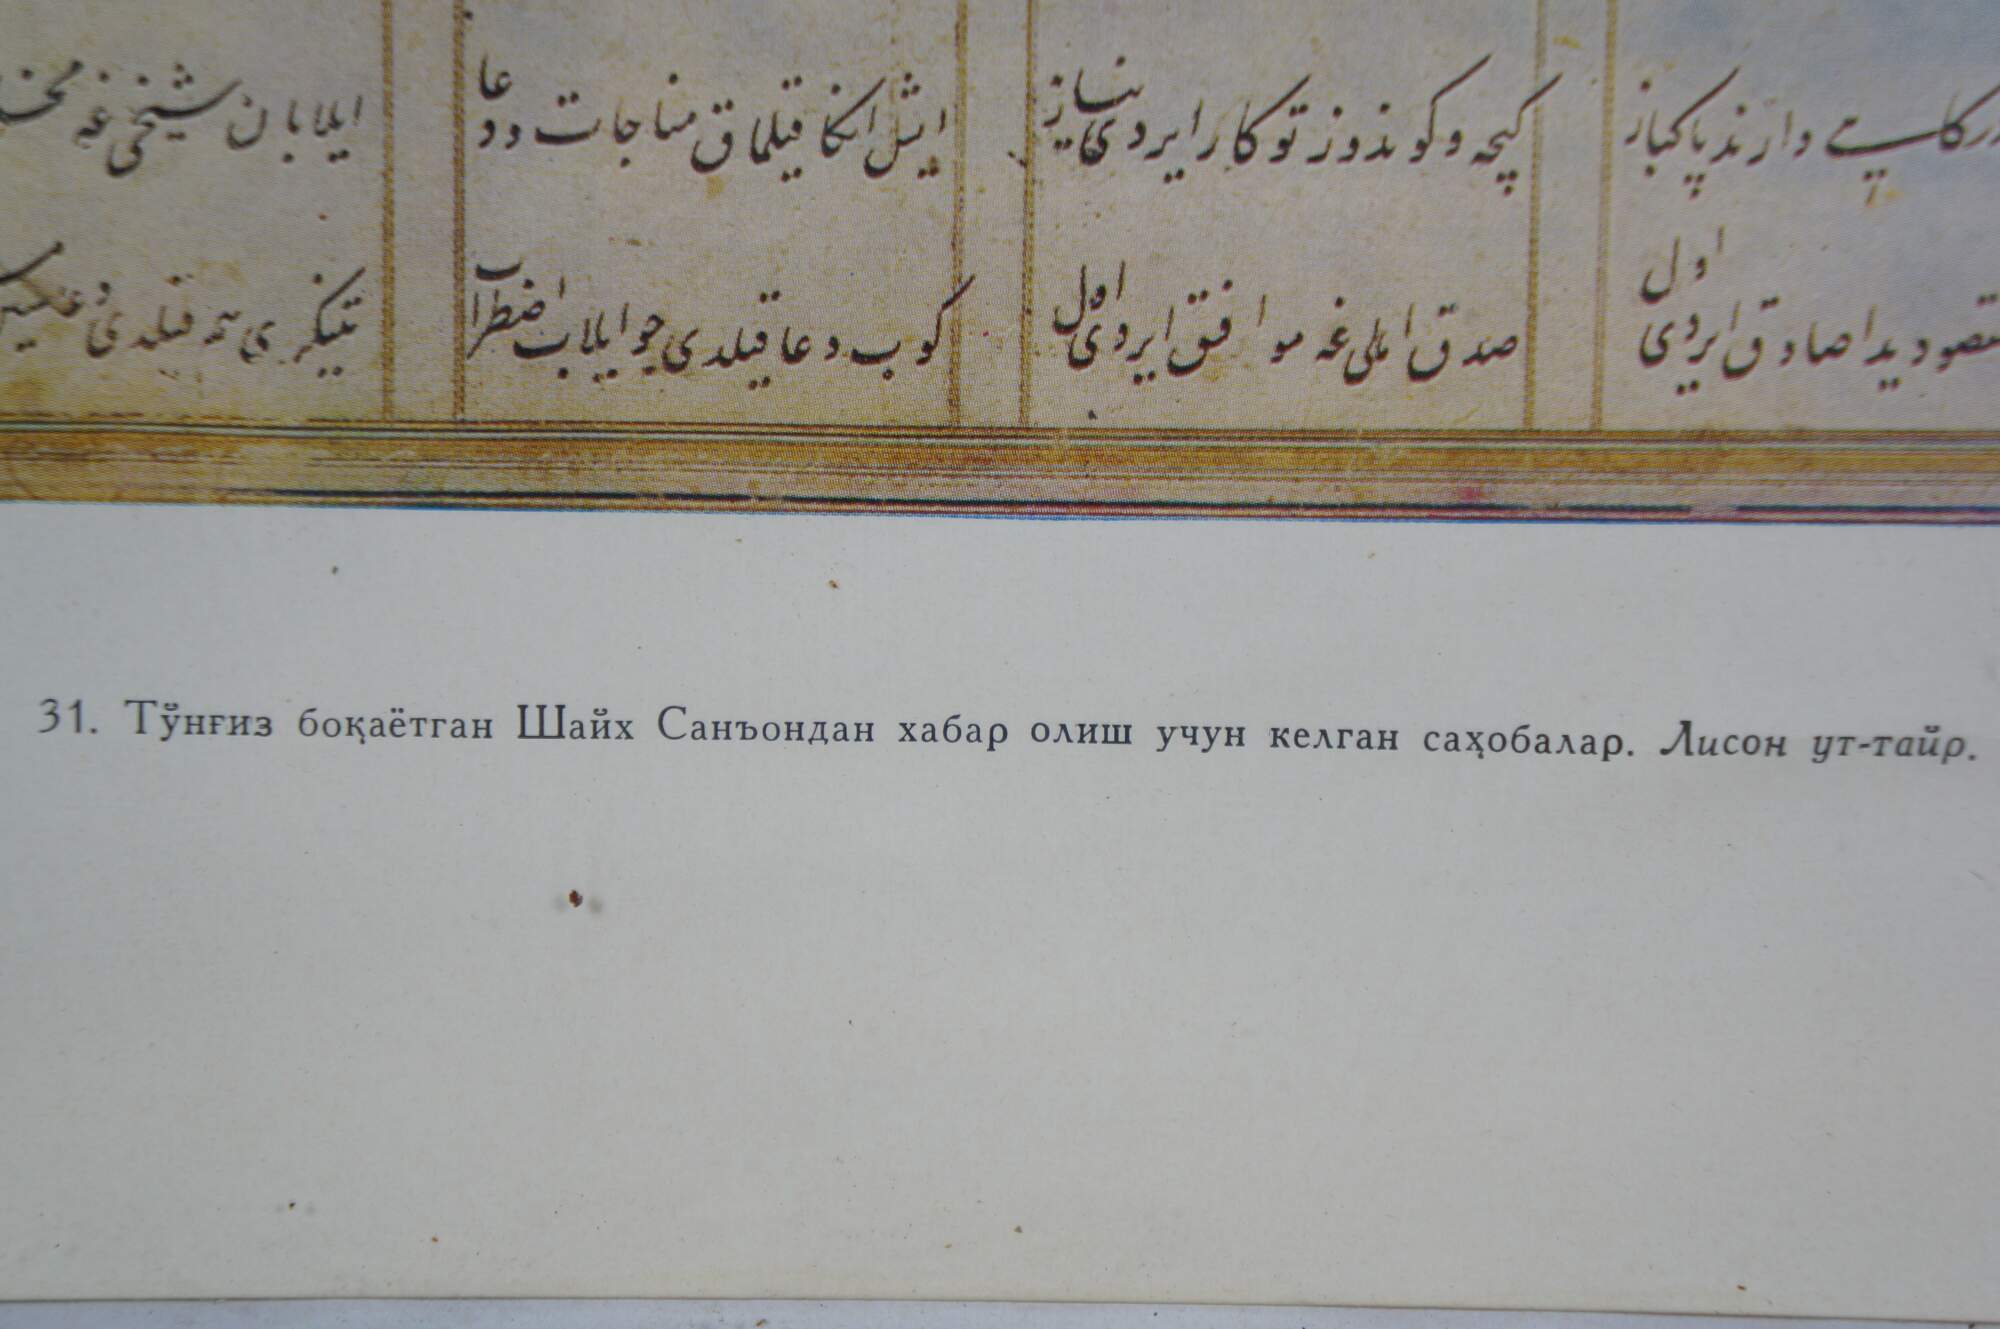 درکاہے دا رند پاکباز کیچه و کوندوز توکار ایردی نیاز ایش انکا قیلماق مناجات و دعا ایلابان شیخی غه
مقصودیدا صادق ایردی اول صدق اهلی غه موافق ایردی اول کوب دعا قیلدی چو ایلاب اضطرآب تینکری هم قیلدی دعاسین
31. Тўнғиз боқаётган Шайх Санъондан хабар олиш учун келган саҳобалар. Лисон ут-тайр.